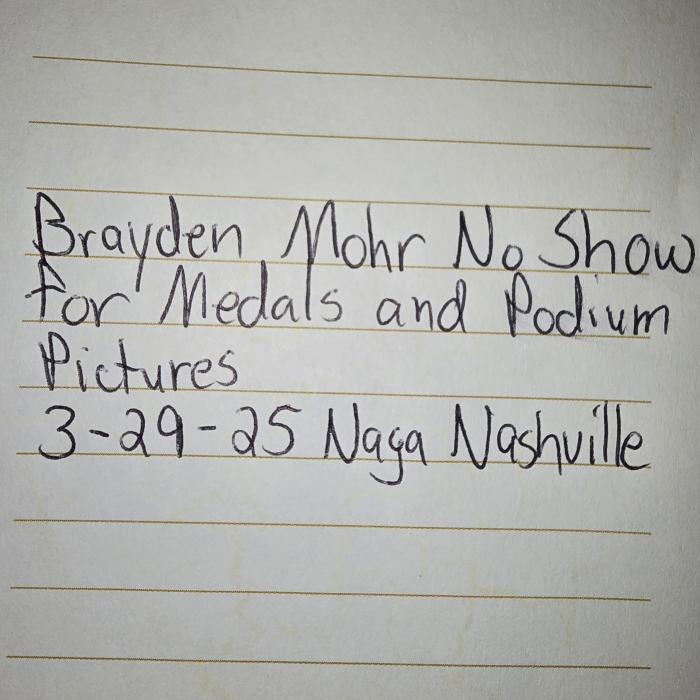 Brayden Mohr No Show
for Medals and Podium
Pictures
3-29-25 Naga Nashville